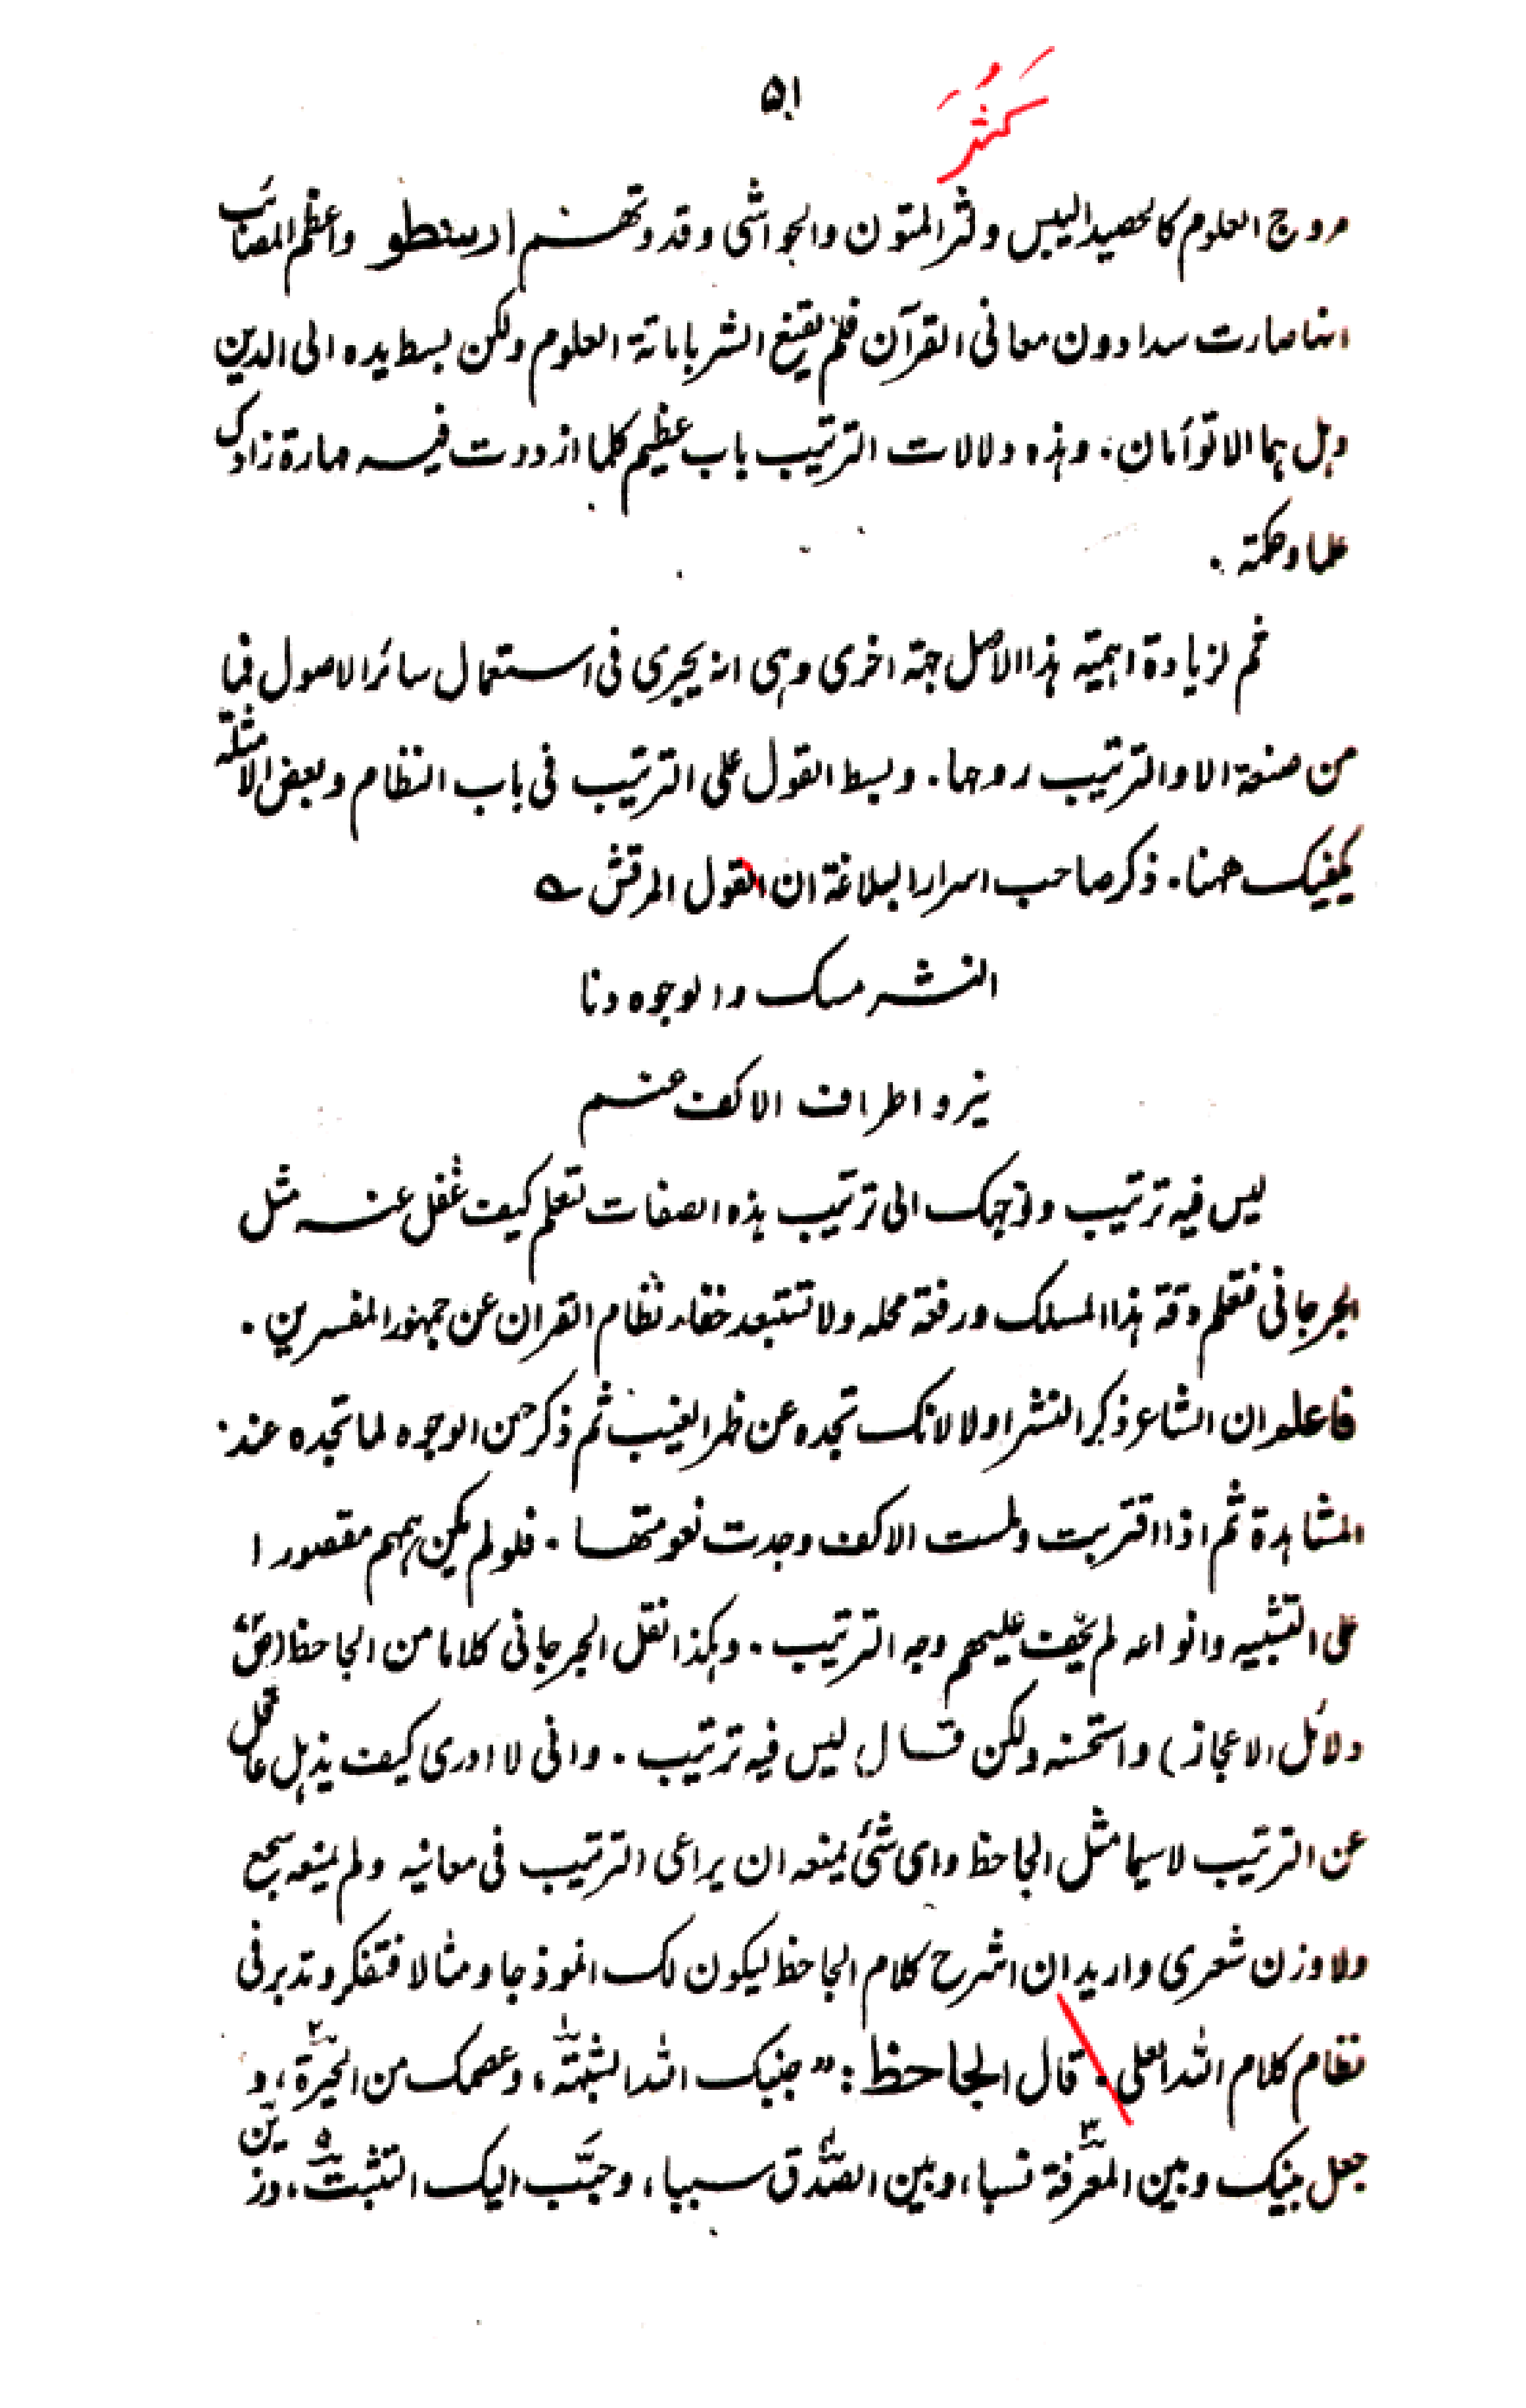 ۵۱
كَثُرَ
مروج العلوم كالحصيد اليبس وكثر المتون والحواشى وقدوتهم ارسطو واعظم المصائب
انها صارت سدا دون معانى القرآن فلم يقنع الشر باماتة العلوم ولكن بسط يده الى الدين
وهل هما الا توأمان. وهذه دلالات الترتيب باب عظيم كلما ازددت فيه مهارة زادك
علما وحكمة.
ثم لزيادة اهمية هذا الاصل جهة اخرى وهى انه يجرى فى استعمال سائر الاصول فما
من صنعة الا والترتيب روحها. وبسط القول على الترتيب فى باب النظام وبعض الامثلة
يكفيك ههنا. ذكر صاحب اسرار البلاغة ان القول المرقش ؎
النشر مسك والوجوه دنا
نير واطراف الاكف عنم
ليس فيه ترتيب ونوجهك الى ترتيب هذه الصفات لتعلم كيف غفل عنه مثل
الجرجانى فتعلم دقة هذا المسلك ورفعة محله ولا تستبعد خفاء نظام القران عن جمهور المفسرين.
فاعلم ان الشاعر ذكر النشر اولا لانك تجده عن ظهر الغيب ثم ذكر حسن الوجوه لما تجده عند
المشاهدة ثم اذا اقتربت ولمست الاكف وجدت نعومتها. فلو لم يكن همهم مقصورا
على التشبيه وانواعه لم يخف عليهم وجه الترتيب. وهكذا نقل الجرجانى كلاما من الجاحظ (ص
دلائل الاعجاز) واستحسنه ولكن قال: ليس فيه ترتيب. وانى لا ادرى كيف يذهل عاقل
عن الترتيب لاسيما مثل الجاحظ واى شئ يمنعه ان يراعى الترتيب فى معانيه ولم يمنعه سجع
ولا وزن شعرى واريد ان اشرح كلام الجاحظ ليكون لك انموذجا ومثالا فتفكر وتدبر فى
نظام كلام الله العلى. قال الجاحظ: "جنبك الله الشبهة، وعصمك من الحيرة، و
جعل بينك وبين المعرفة نسبا، وبين الصدق سببا، وحبّب اليك التثبت، وزين